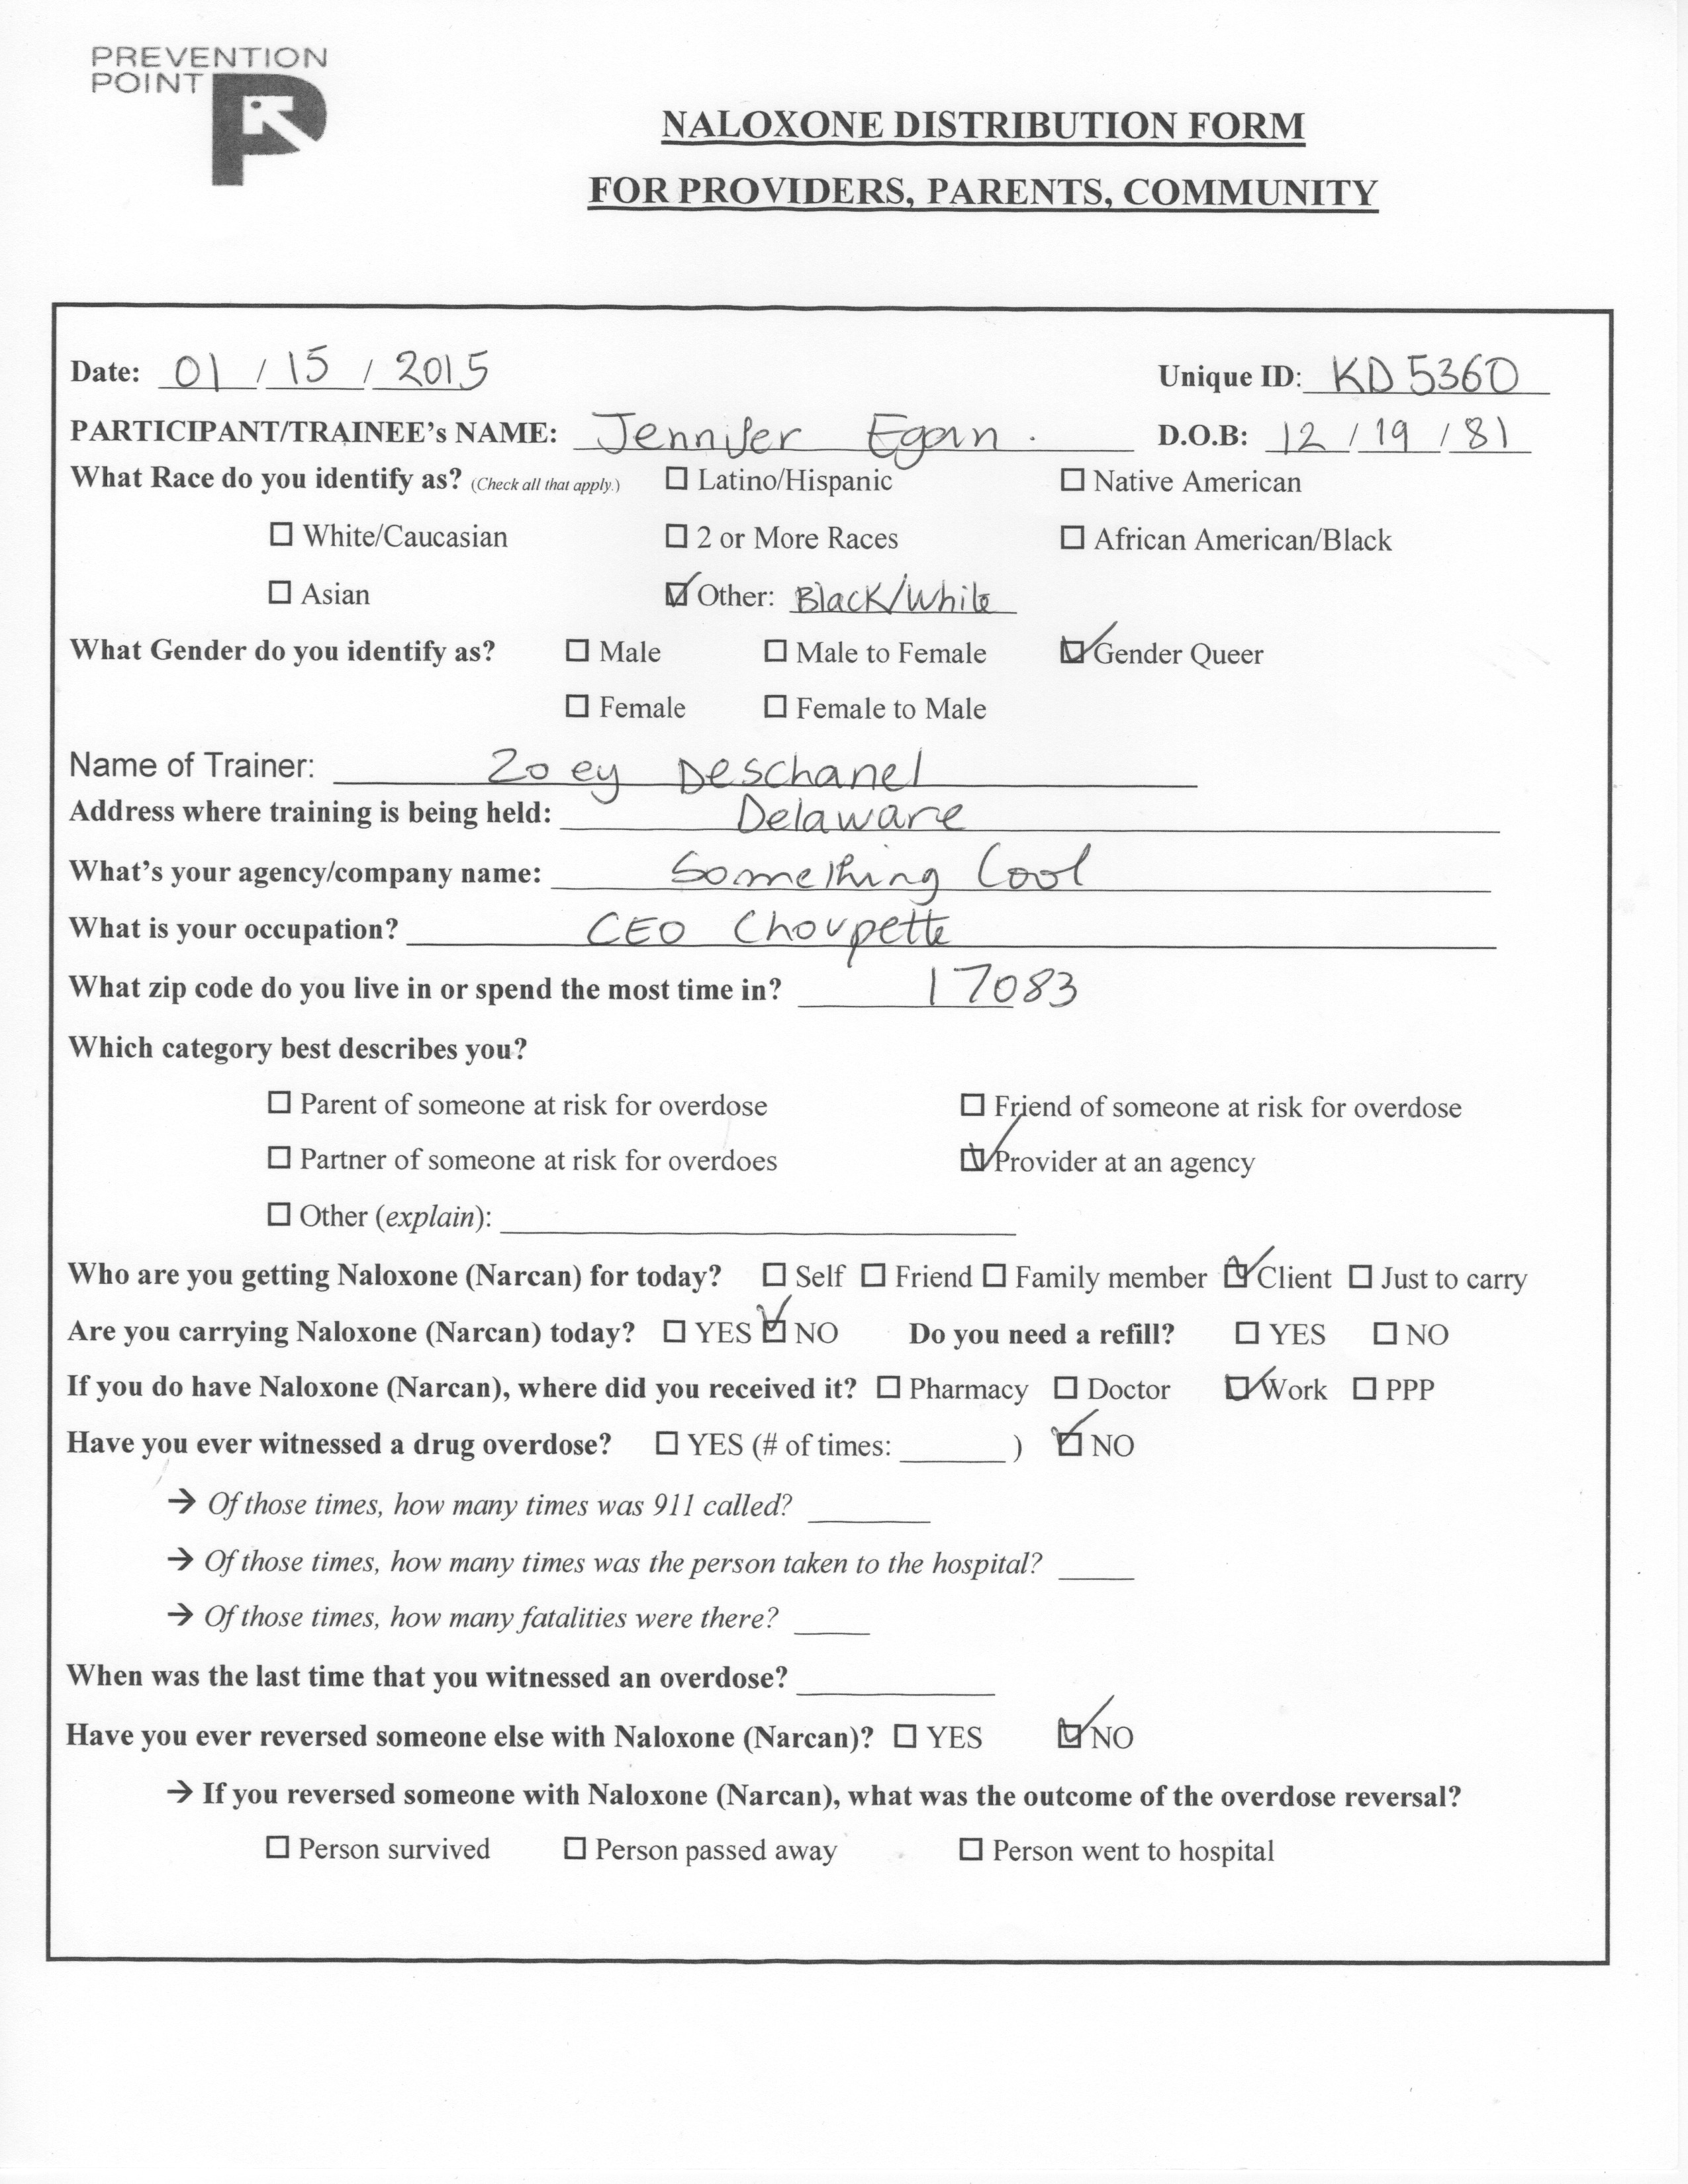 PREVENTION
POINT
NALOXONE DISTRIBUTION FORM
FOR PROVIDERS, PARENTS, COMMUNITY
Date: 01 / 15 / 2015 Unique ID: KD5360
PARTICIPANT/TRAINEE's NAME: Jennifer Egan. D.O.B: 12 / 19 / 81
What Race do you identify as? (Check all that apply.) ☐ Latino/Hispanic ☐ Native American
☐ White/Caucasian ☐ 2 or More Races ☐ African American/Black
☐ Asian ☑ Other: Black/White
What Gender do you identify as? ☐ Male ☐ Male to Female ☑ Gender Queer
☐ Female ☐ Female to Male
Name of Trainer: Zoey Deschanel
Address where training is being held: Delaware
What's your agency/company name: Something Cool
What is your occupation? CEO Choupette
What zip code do you live in or spend the most time in? 17083
Which category best describes you?
☐ Parent of someone at risk for overdose ☐ Friend of someone at risk for overdose
☐ Partner of someone at risk for overdoes ☑ Provider at an agency
☐ Other (explain): ____
Who are you getting Naloxone (Narcan) for today? ☐ Self ☐ Friend ☐ Family member ☑ Client ☐ Just to carry
Are you carrying Naloxone (Narcan) today? ☐ YES ☑ NO Do you need a refill? ☐ YES ☐ NO
If you do have Naloxone (Narcan), where did you received it? ☐ Pharmacy ☐ Doctor ☑ Work ☐ PPP
Have you ever witnessed a drug overdose? ☐ YES (# of times: ____ ) ☑ NO
→ Of those times, how many times was 911 called? ____
→ Of those times, how many times was the person taken to the hospital? ____
→ Of those times, how many fatalities were there? ____
When was the last time that you witnessed an overdose? ____
Have you ever reversed someone else with Naloxone (Narcan)? ☐ YES ☑ NO
→ If you reversed someone with Naloxone (Narcan), what was the outcome of the overdose reversal?
☐ Person survived ☐ Person passed away ☐ Person went to hospital